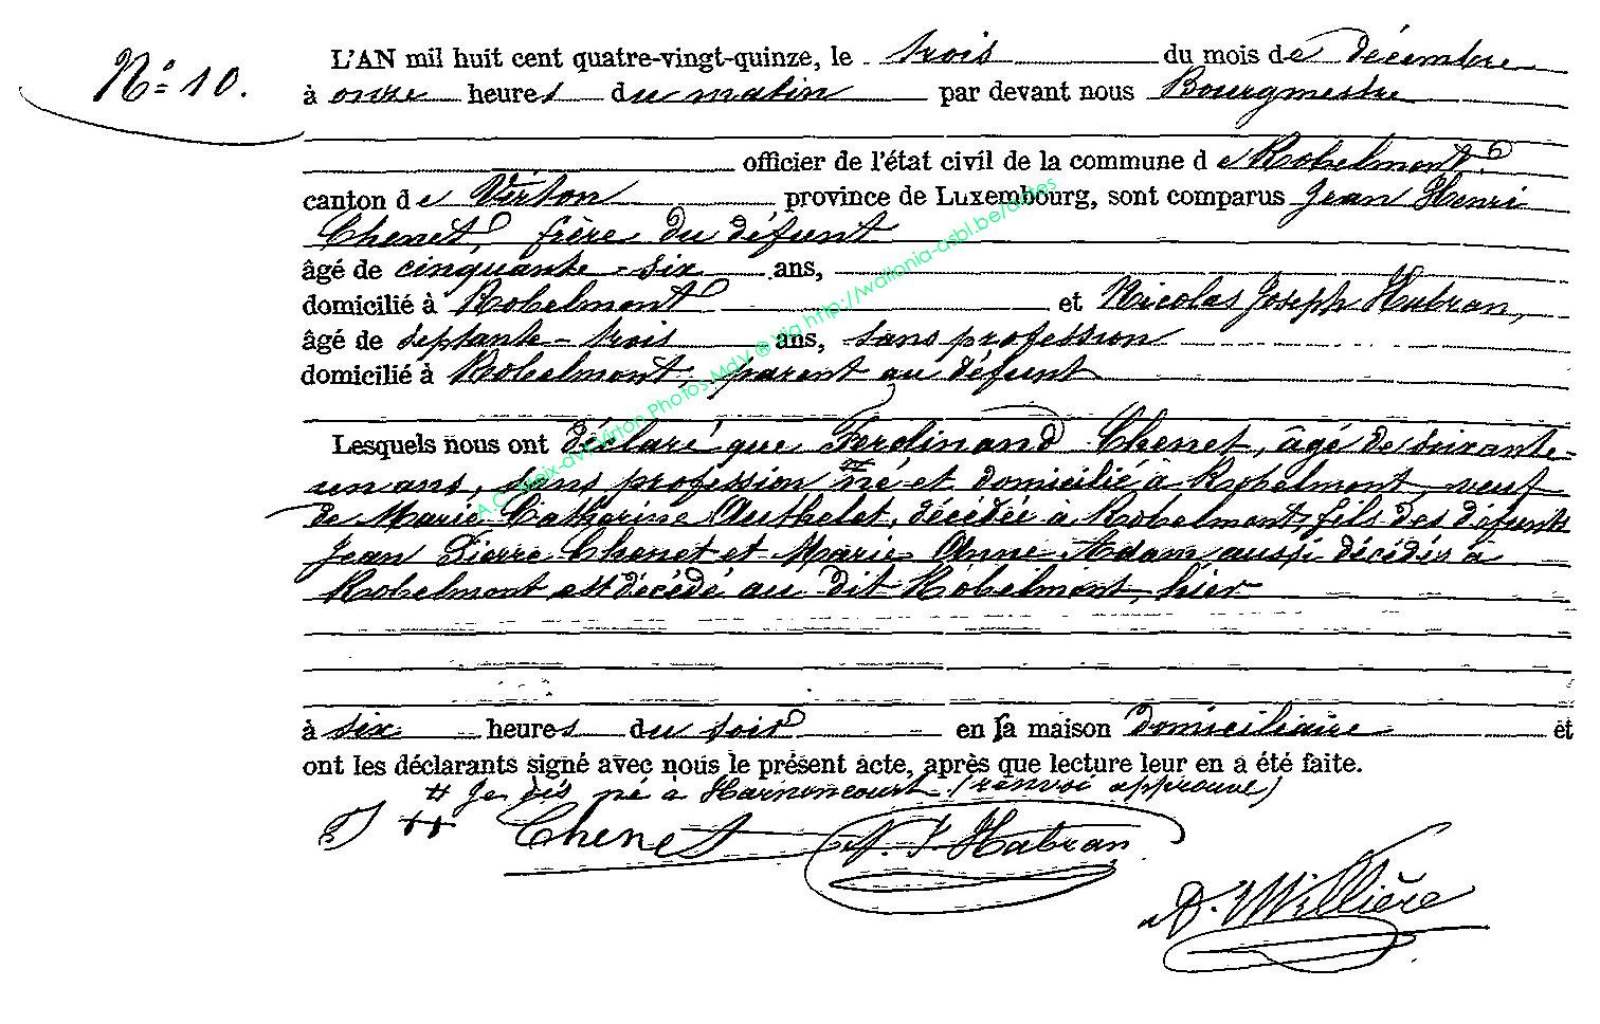 N° 10.
L'AN mil huit cent quatre-vingt-quinze, le trois du mois de décembre
à onze heures du matin par devant nous Bourgmestre
officier de l'état civil de la commune de Robelmont
canton de Virton province de Luxembourg, sont comparus Jean Henri
Chenet, frère du défunt
âgé de cinquante-six ans,
domicilié à Robelmont et Nicolas Joseph Habran,
âgé de septante-trois ans, sans profession
domicilié à Robelmont, parent au défunt
Lesquels nous ont déclaré que Ferdinand Chenet, âgé de soixante-
un ans, sans profession # né et domicilié à Robelmont, veuf
de Marie Catherine Authelet, décédée à Robelmont, fils des défunts
Jean Pierre Chenet et Marie Anne Adam aussi décédés à
Robelmont est décédé au dit Robelmont, hier
à six heures du soir en sa maison domiciliaire et
ont les déclarants signé avec nous le présent acte, après que lecture leur en a été faite.
# né à Harnoncourt (renvoi approuvé)
Chenet N. J. Habran
D. Millière
A.C. Meix-dvt-Virton Photos MdV ® Via http://wallonia-asbl.be/actes